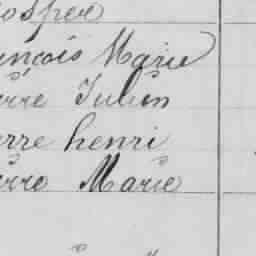 osper
ançois Marie
erre Julien
erre henri
erre Marie